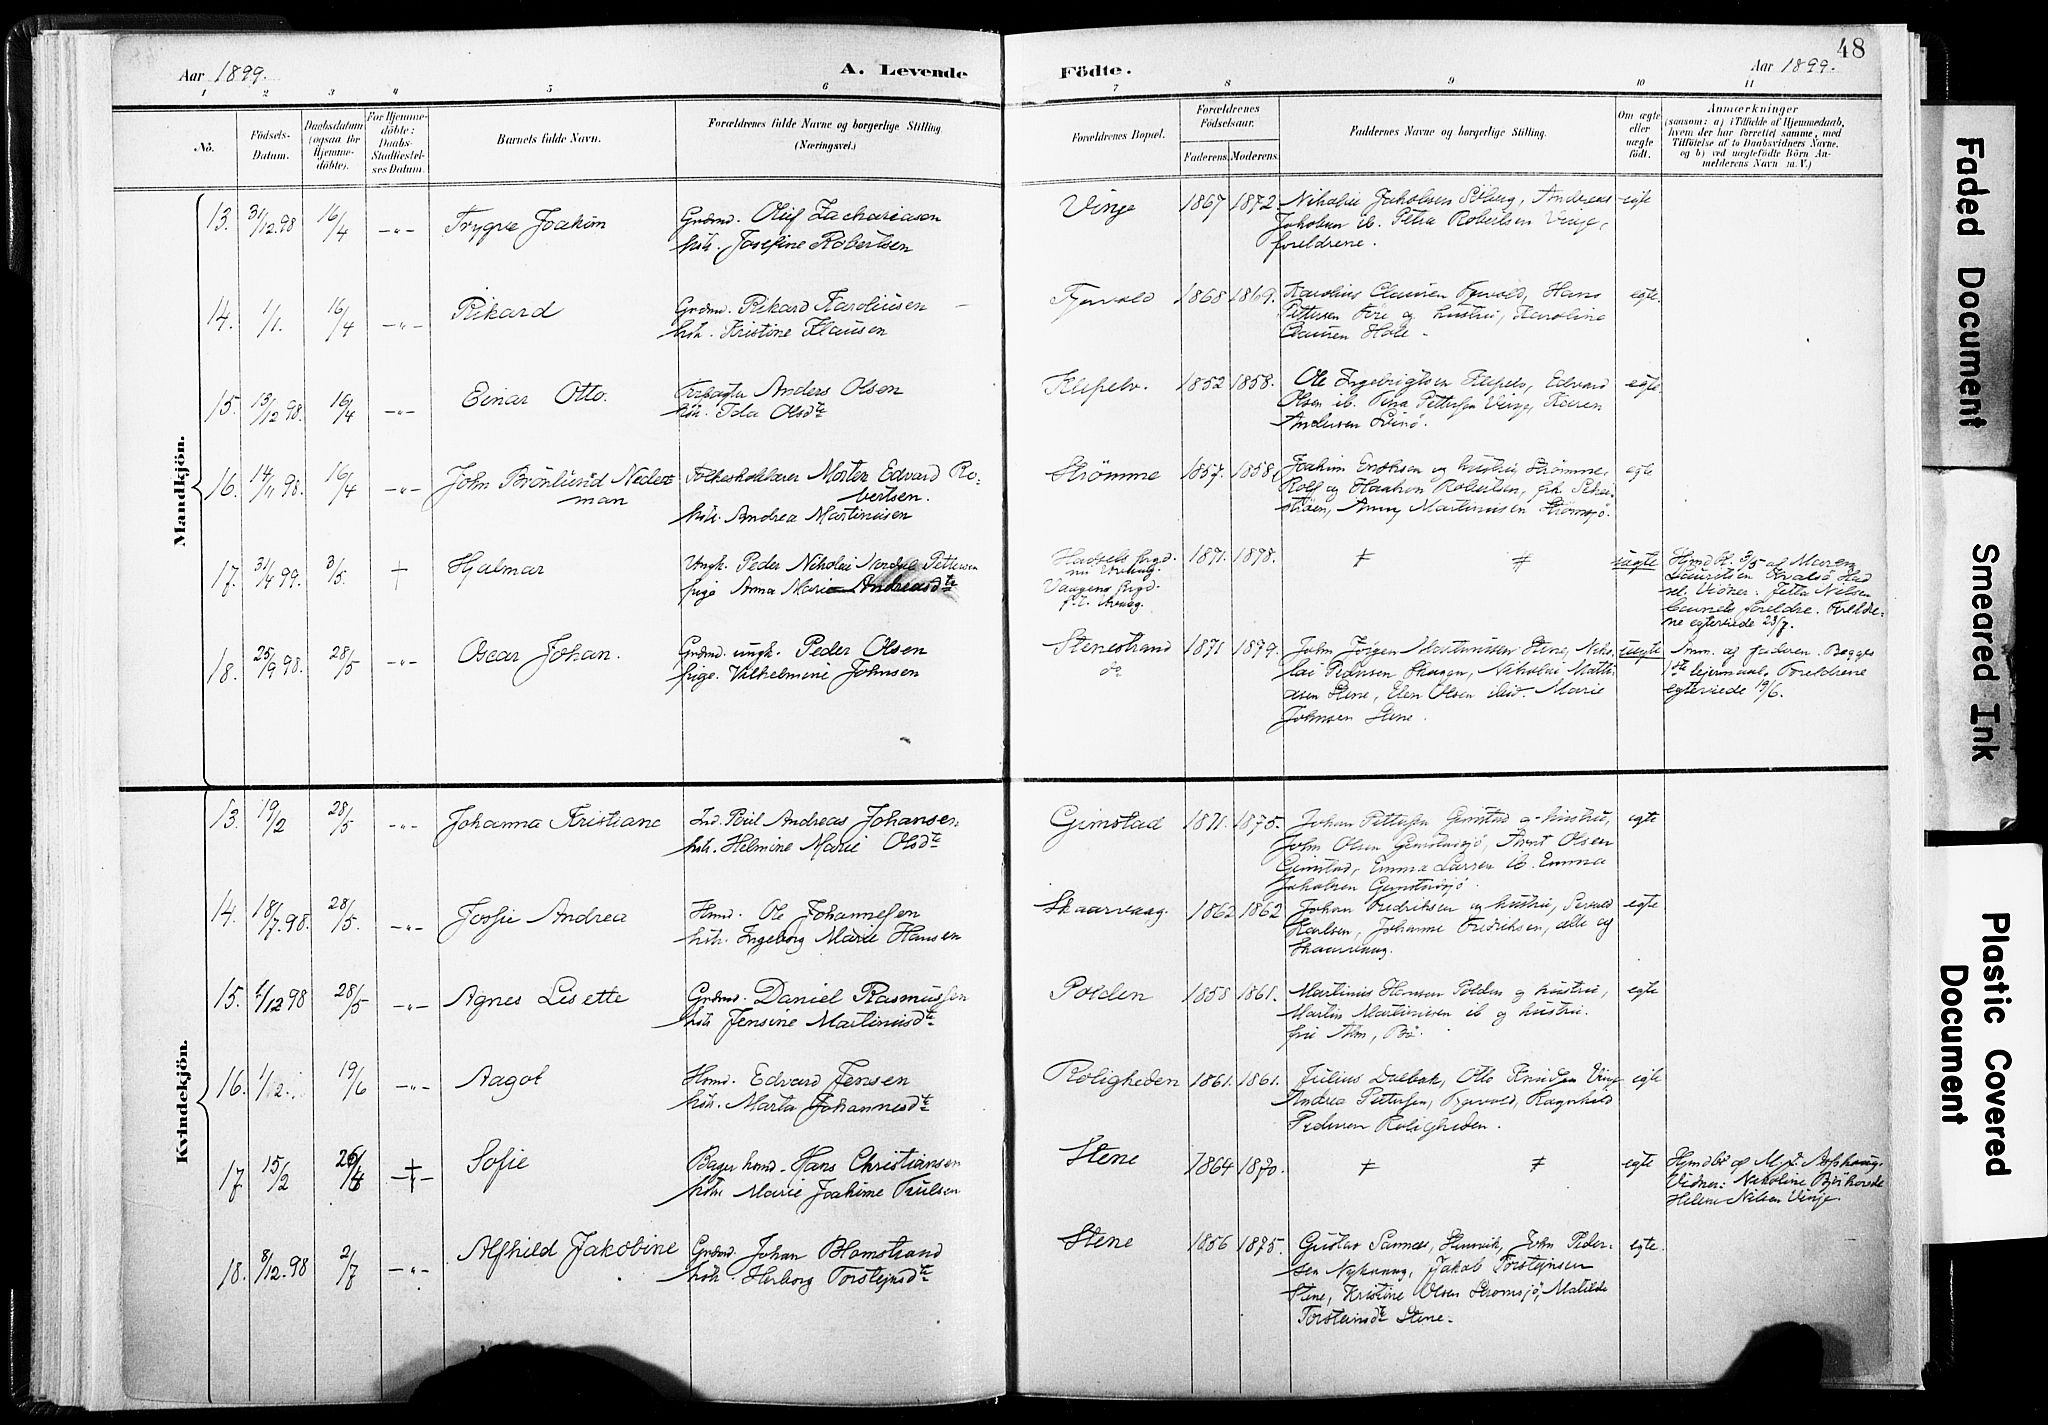 48
Aar 1899.
A. Levende
Födte.
Aar 1899.
1 2 3 4 5 6 7 8 9 10 11
No.
Födsels-
Datum.
Daabsdatum
(ogsaa for
Hjemme-
döbte).
For Hjemme-
döbte:
Daabs-
Stadfæstel-
ses Datum.
Barnets fulde Navn.
Forældrenes fulde Navne og borgerlige Stilling.
(Næringsvei.)
Forældrenes Bopæl.
Forældrenes
Födselsaar.
Faderens. Moderens.
Faddernes Navne og borgerlige Stilling.
Om ægte
eller
uægte
født.
Anmærkninger
(saasom: a) i Tilfælde af Hjemmedaab,
hvem der har forrettet samme, med
Tilföielse af to Daabsvidners Navne.
og b) ved uægtefödte Börn An-
melderens Navn m. V.)
Mandkjön.
13. 31/12.98 16/4 -"- Trygve Joakim
Grdmd. Oluf Zachariasen
hstr. Josefine Robertsen
Vinje 1867 1872.
Nikolai Jakobsen Söberg, Andreas
Jakobsen ib. Petra Robertsen Vinje,
foreldrene.
egte
14. 1/1. 16/4 -"- Rikard
Grdmd. Rikard Karoliusen
hstr. Kristine Klausen
Fjærvold 1868 1869.
Karolius Clausen Fjærvold, Hans
Pettersen Före og hustru, Karoline
Clausen Hole.
egte.
15. 13/12 98. 16/4 -"- Einar Otto.
Anders Olsen
hstr. Ida Olsdte
Klepelv. 1852 1858.
Ole Ingebrigtsen Klepelv, Edvard
Olsen ib. Petterssen Vinje, Karen
Andersen Svinö.
egte.
16. 14/11 98. 16/4 -"- John Brönlund Neder-
man
Folkeskolelærer Morten Edvard Ro-
bertsen.
hstr. Andrea Martinusen
Strömme 1857. 1858.
Joakim og hustru Strömme,
Rolf og Haakon Robertsen,
Anny Martinusen Strömsjö.
egte
17. 31/4 99. 3/5. + Hjalmar
Ungk. Peder Nikolai Nordal Pettersen
pige Anna Marie Andreasdte
Hadsels Prgd.
Vaagens Prgd.
1871. 1878.
uegte
Hjmd. 3/5 af Maren
Lauritsen Kvalsö Had
sel. Vidner: Jetta Nilsen
barnets foreldre. Foreldre-
ne egteviede 23/7.
18. 25/9 98. 28/5 -"- Oscar Johan.
Grdmd. ungk. Peder Olsen
pige. Vilhelmine Johnsen
Stenestrand
do
1871 1879.
John Jörgen Martinussen Stene, Niko-
lai Pedersen Skagen, Nikolai Matti-
asen Stene, Elen Olsen ibid. Marie
Johnsen Stene.
uegte
Anm. af faderen. Begges
1ste leiermaal. Foreldrene
egteviede 19/6.
Kvindekjön.
13. 19/2 28/5 -"- Johanna Kristiane
Ind. Andreas Johansen
hstr. Helmine Marie Olsdte
Gimstad 1871. 1875.
Johan Pettersen Gimstad o- hustru,
John Olsen Gimstadsjö, Arnt Olsen
Gimstad, Emma Larsen ib. Emma
Jakobsen Gimstadsjö.
egte
14. 18/7.98. 28/5. -"- Josfie Andrea
Hmd. Ole Johannessen
hstr. Ingeborg Marie Hansen
Skaarvaag. 1862 1862
Johan Fredriksen og hustru,
Karlsen, Johanne Fredriksen, alle og
Skaarvaag.
egte
15. 1/12 98 28/5 -"- Agnes Lisette
Grdmd. Daniel Rasmussen
hstr Jensine Martinusdte
Polden 1858 1861.
Martinus Hansen Polden og hustru,
Martin Martinusen ib og hustru.
Bö.
egte
16. 1/12. 19/6 -"- Aagot
Hmd. Edvard Jensen
hstr. Marta Johannesdte
Roligheden 1861. 1861.
Julius Dalbak, Otto Knudsen Vinje
Andrea Pettersen, Fjærvold, Ragnhild
Pedersen Roligheden.
egte
17. 15/2 -+- Sofie
Bager hmd. Hans Christiansen
hstr Marie Joakime Trulsen
Stene 1864 1870.
egte
Hjmdbt af M. J. Asphaug.
Vidner: Nikoline
Helene Nilsen Vinje.
18. 8/12.98 2/7 -"- Alfhild Jakobine
Grdmd. Johan Blomstrand
hstr. Herborg Torsteinsdte
Stene 1856 1875.
Gustav Sannes, Hennik, John Peder-
sen Nykvaag, Jakob Torsteinsen
Stene, Kristine Olsen Strömsjö, Matilde
Torsteinsdte Stene.
egte.
Faded Document
Smeared Ink
Plastic Covered
Document